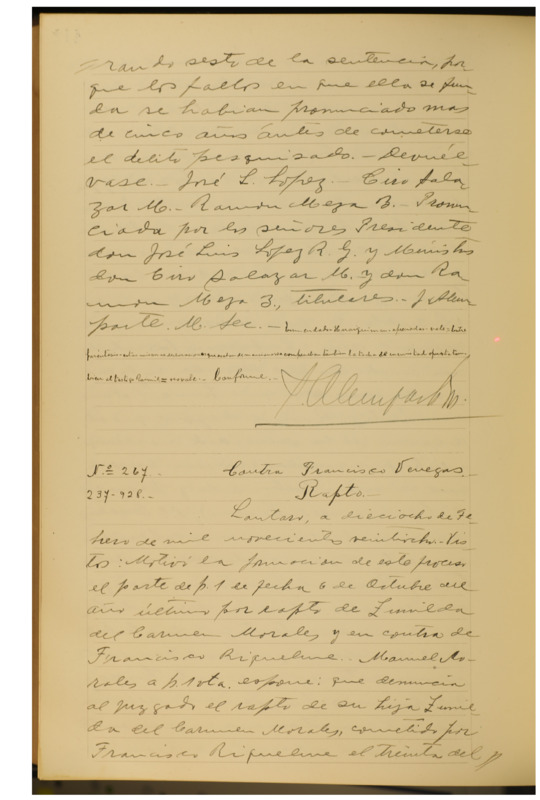 rando sesto de la sentencia, por
que los fallos en que ella se fun
da se habian pronunciado mas
de cinco años ántes de cometerse
el delito pesquisado. – Devuél
vase. – José L. Lopez. – Ciro Sala
zar M. – Ramon Meza B. – Pronun
ciada por los señores Presidente
don José Luis Lopez R. G. y Ministros
don Ciro Salazar M. y don Ra
mon Meza B., titulares. –
parte. M. Sec. –
Conforme. –
N.º 267.
237-928. –
Contra Francisco Venegas. –
Rapto. –
Lautaro, a dieciocho de Fe-
brero de mil novecientos veintiocho. – Vis
tos: Motivó la formacion de este proceso
el parte de f. 1 de fecha 6 de Octubre del
año último por rapto de Zunilda
del Carmen Morales y en contra de
Francisco Riquelme. Manuel Mo-
rales a f. 1 vta. espone: que denuncia
al juzgado el rapto de su hija Zunil
da del Carmen Morales, cometido por
Francisco Riquelme el treinta del